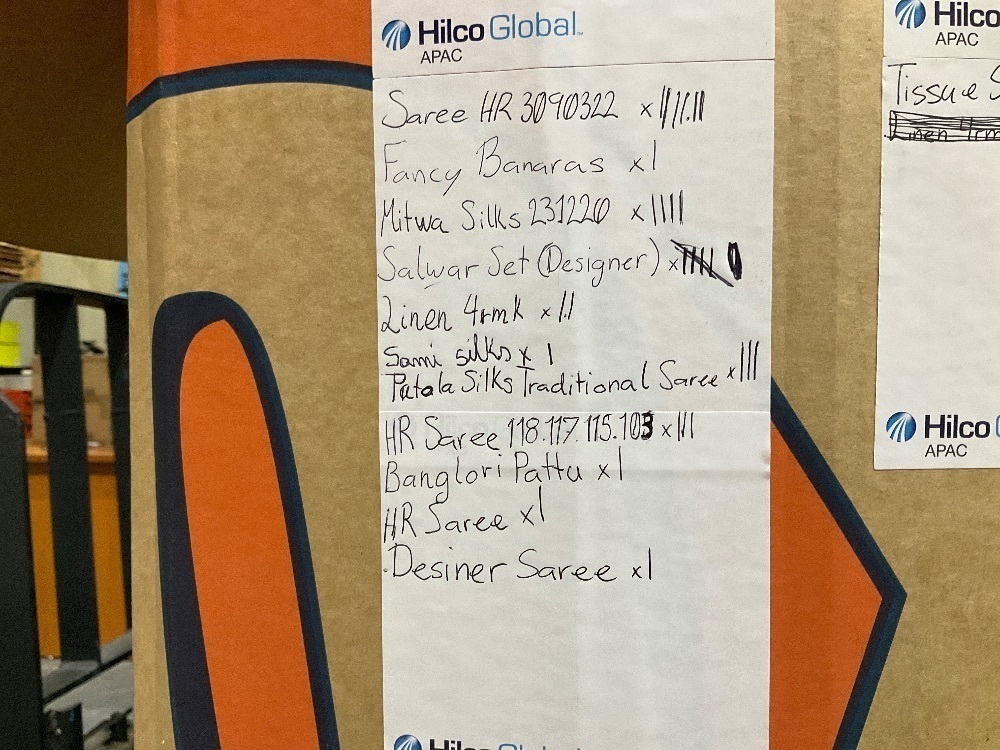 Hilco Global
APAC
Saree HR 3090322 x||||.||
Fancy Banaras x1
Mitwa Silks 231220 x||||
Salwar Set (Designer) x
Linen 4rmk x||
Sami silks x 1
Patola Silks Traditional Saree x|||
HR Saree 118.117.115.103 x|||
Banglori Pattu x1
HR Saree x1
Desiner Saree x1
Hilco Global
Hilco
APAC
Tissue S
Linen 4rm
Hilco
APAC